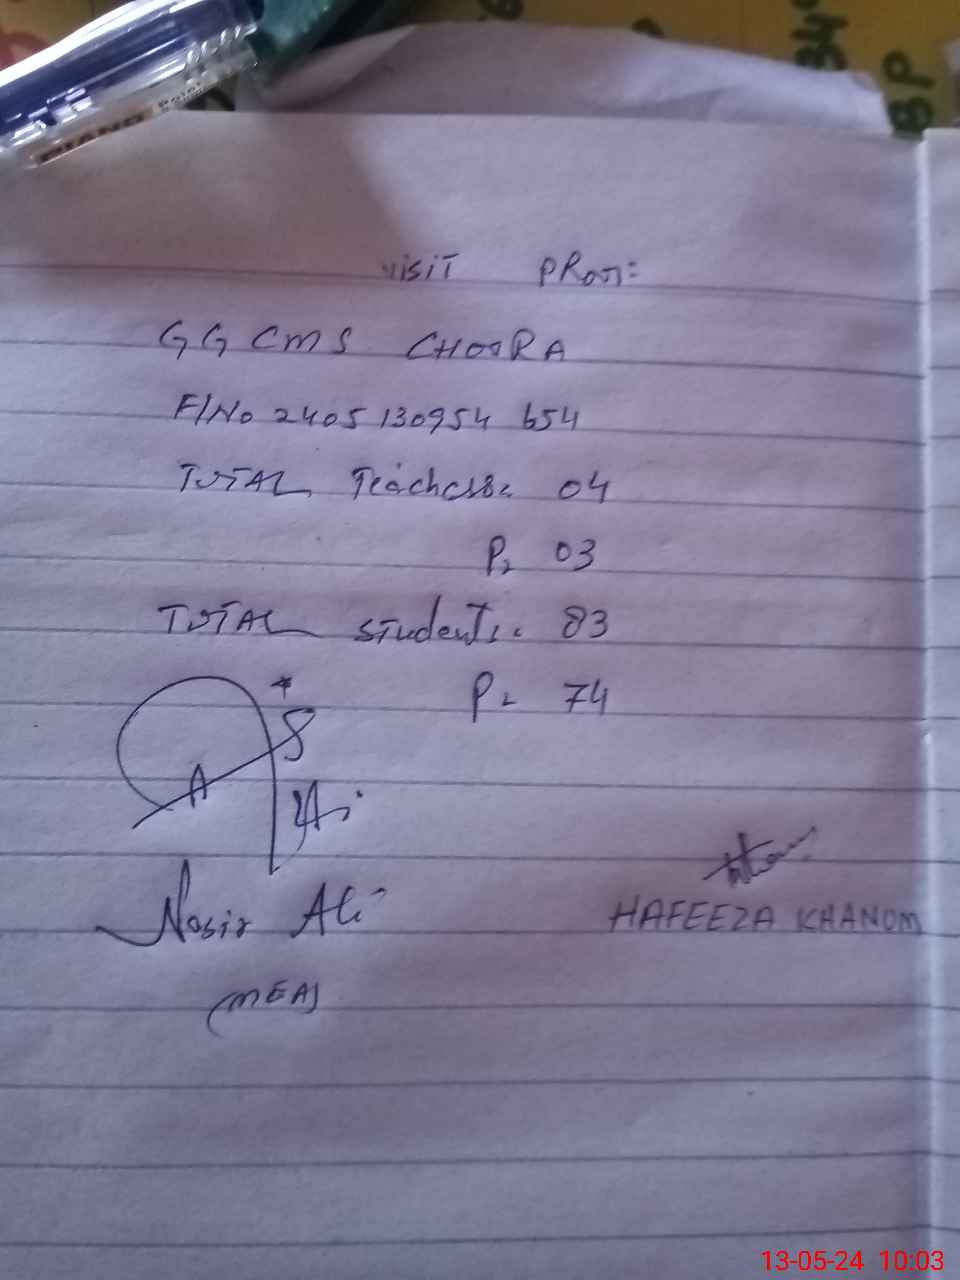 PIANO Point
34
8P
VISIT PRooF:
GGCMS CHOORA
F/No 2405130954 654
TOTAL Teachers: 04
P= 03
TOTAL Students: 83
P= 74
Nasir Ali
(MEA)
HAFEEZA KHANOM
13-05-24 10:03